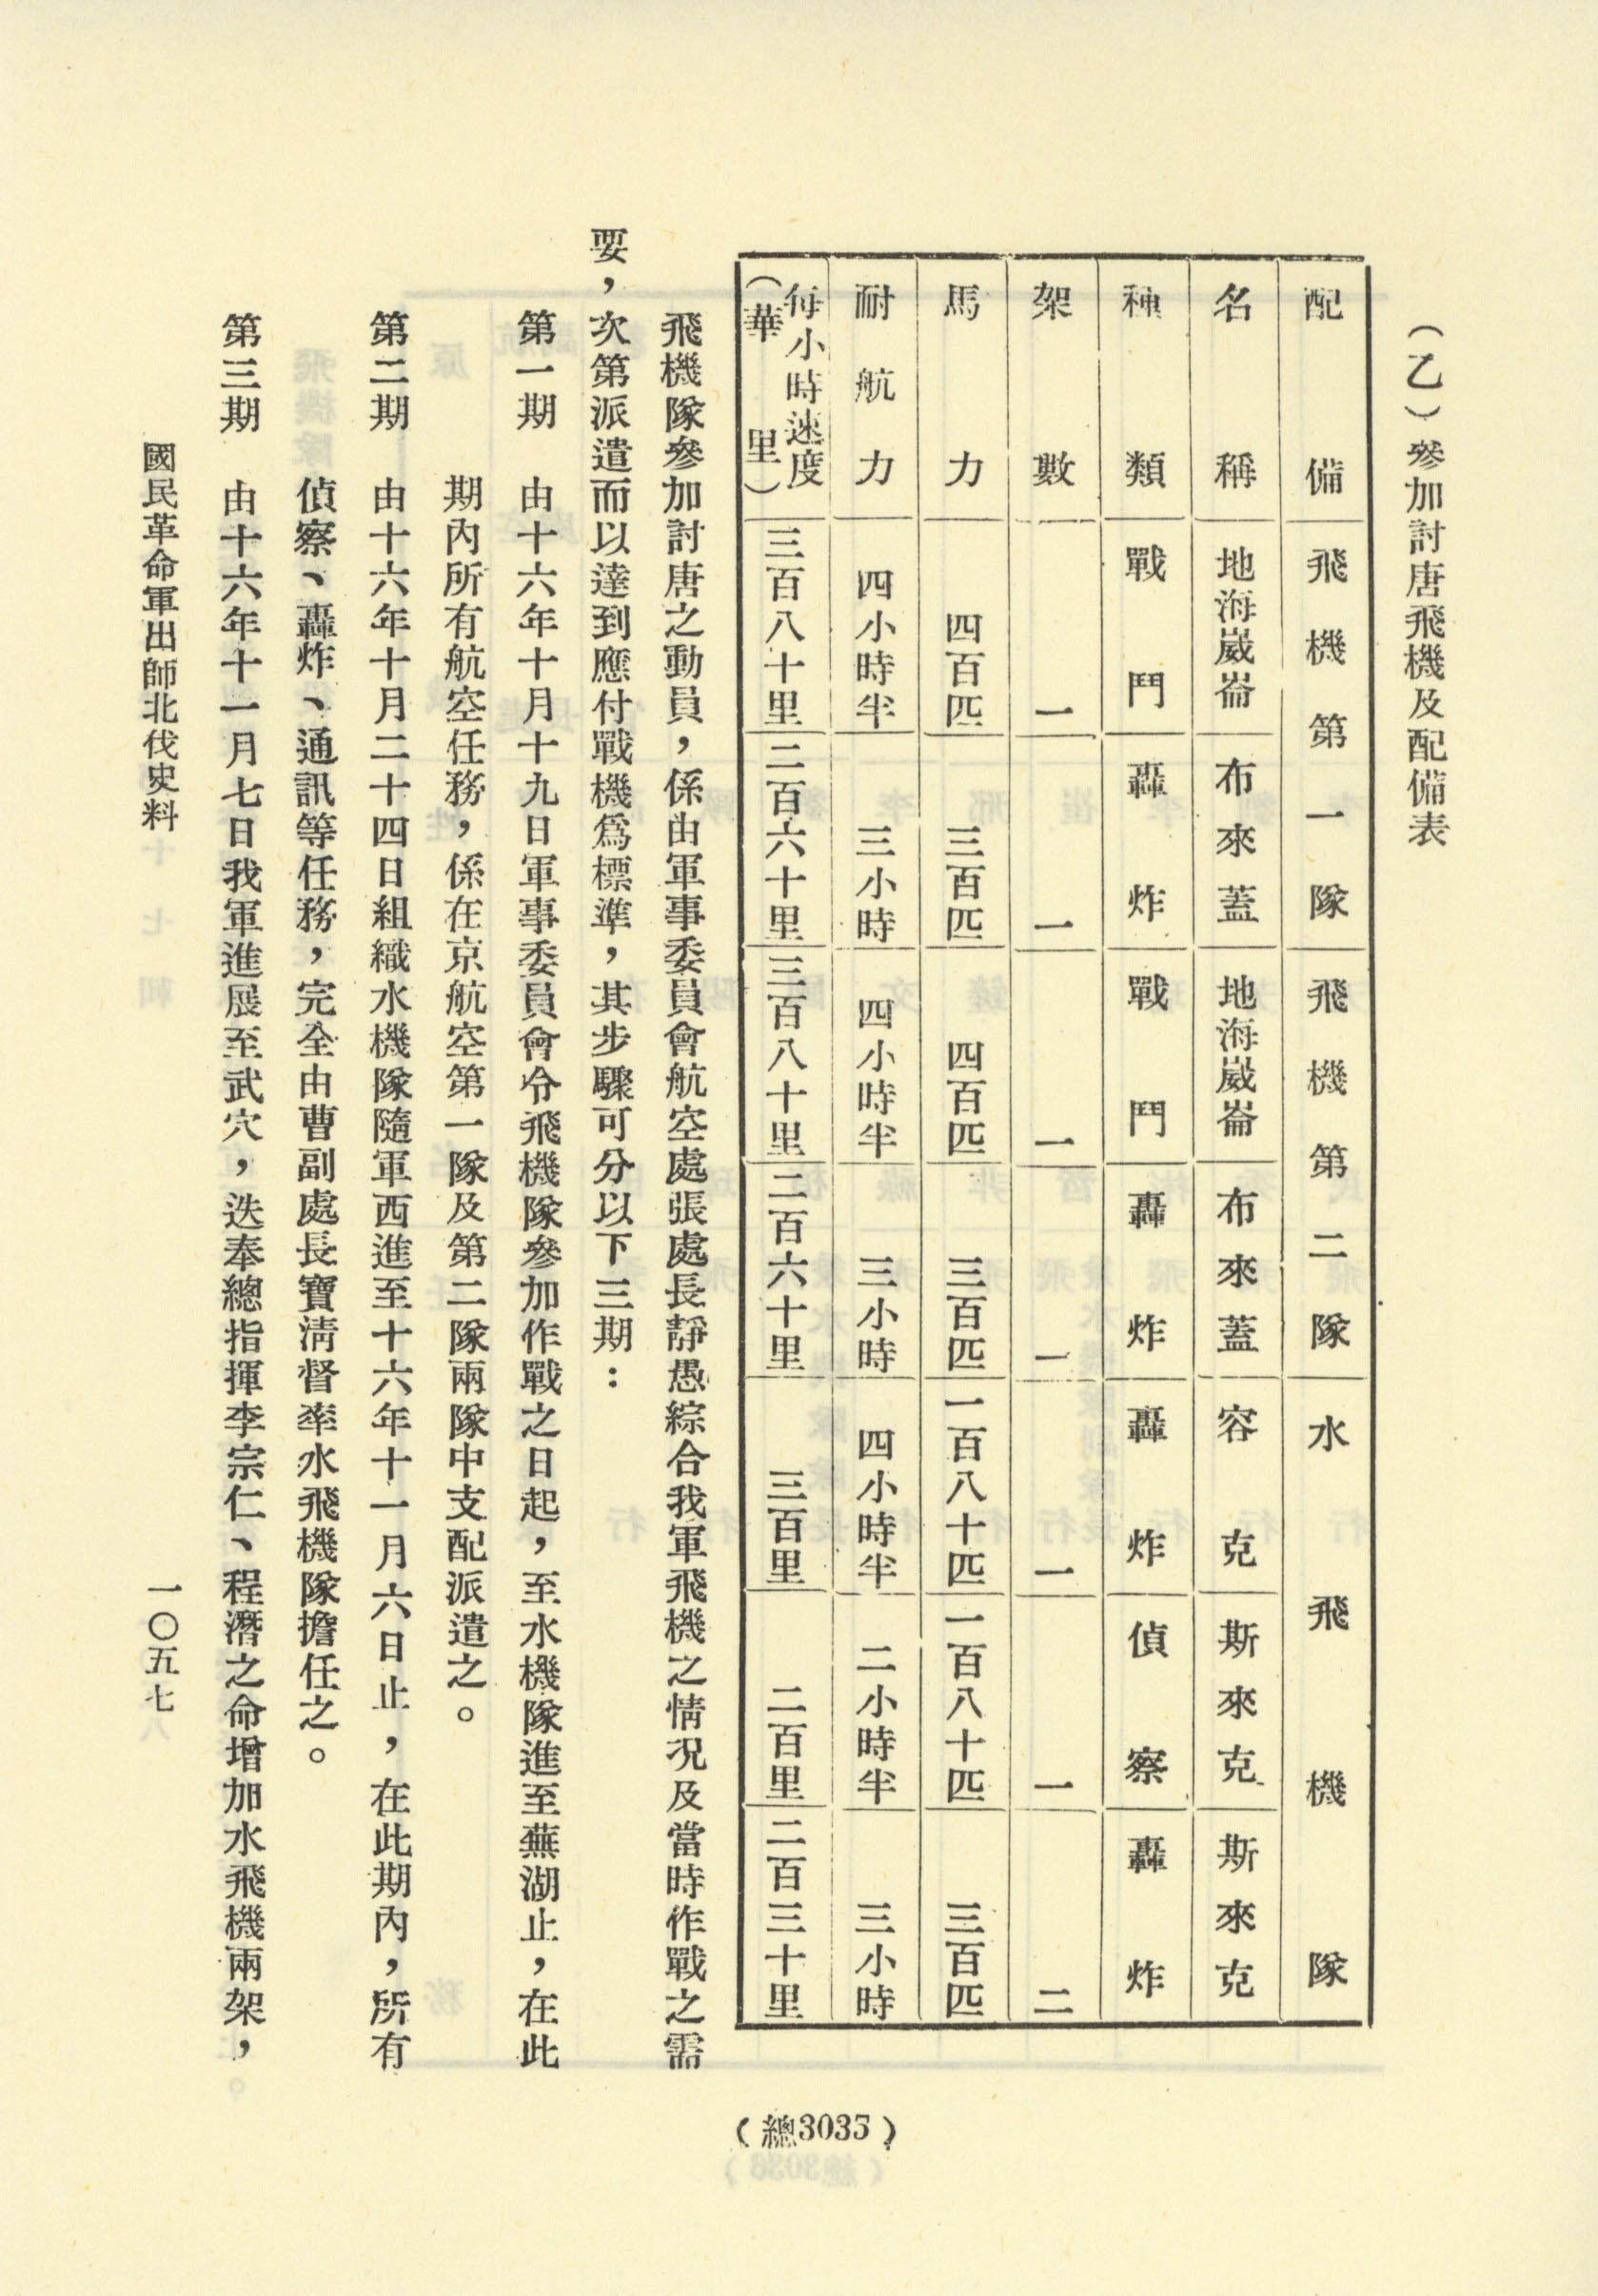 （乙）參加討唐飛機及配備表
配備 飛機第一隊 飛機第二隊 水飛機隊
名稱 地海崴崙 布來蓋 地海崴崙 布來蓋 容克 斯來克 斯來克
種類 戰鬥 轟炸 戰鬥 轟炸 轟炸 偵察 轟炸
架數 一 一 一 一 一 一 二
馬力 四百匹 三百匹 四百匹 三百匹 一百八十匹 一百八十匹 三百匹
耐航力 四小時半 三小時 四小時半 三小時 四小時半 二小時半 三小時
每小時速度（華里） 三百八十里 二百六十里 三百八十里 二百六十里 三百里 二百里 二百三十里
飛機隊參加討唐之動員，係由軍事委員會航空處張處長靜愚綜合我軍飛機之情况及當時作戰之需
要，次第派遣而以達到應付戰機爲標準，其步驟可分以下三期：
第一期　由十六年十月十九日軍事委員會令飛機隊參加作戰之日起，至水機隊進至蕪湖止，在此
期內所有航空任務，係在京航空第一隊及第二隊兩隊中支配派遣之。
第二期　由十六年十月二十四日組織水機隊隨軍西進至十六年十一月六日止，在此期內，所有
偵察、轟炸、通訊等任務，完全由曹副處長寶淸督率水飛機隊擔任之。
第三期　由十六年十一月七日我軍進展至武穴，迭奉總指揮李宗仁、程潛之命增加水飛機兩架，
國民革命軍出師北伐史料
一〇五七
（總3035）